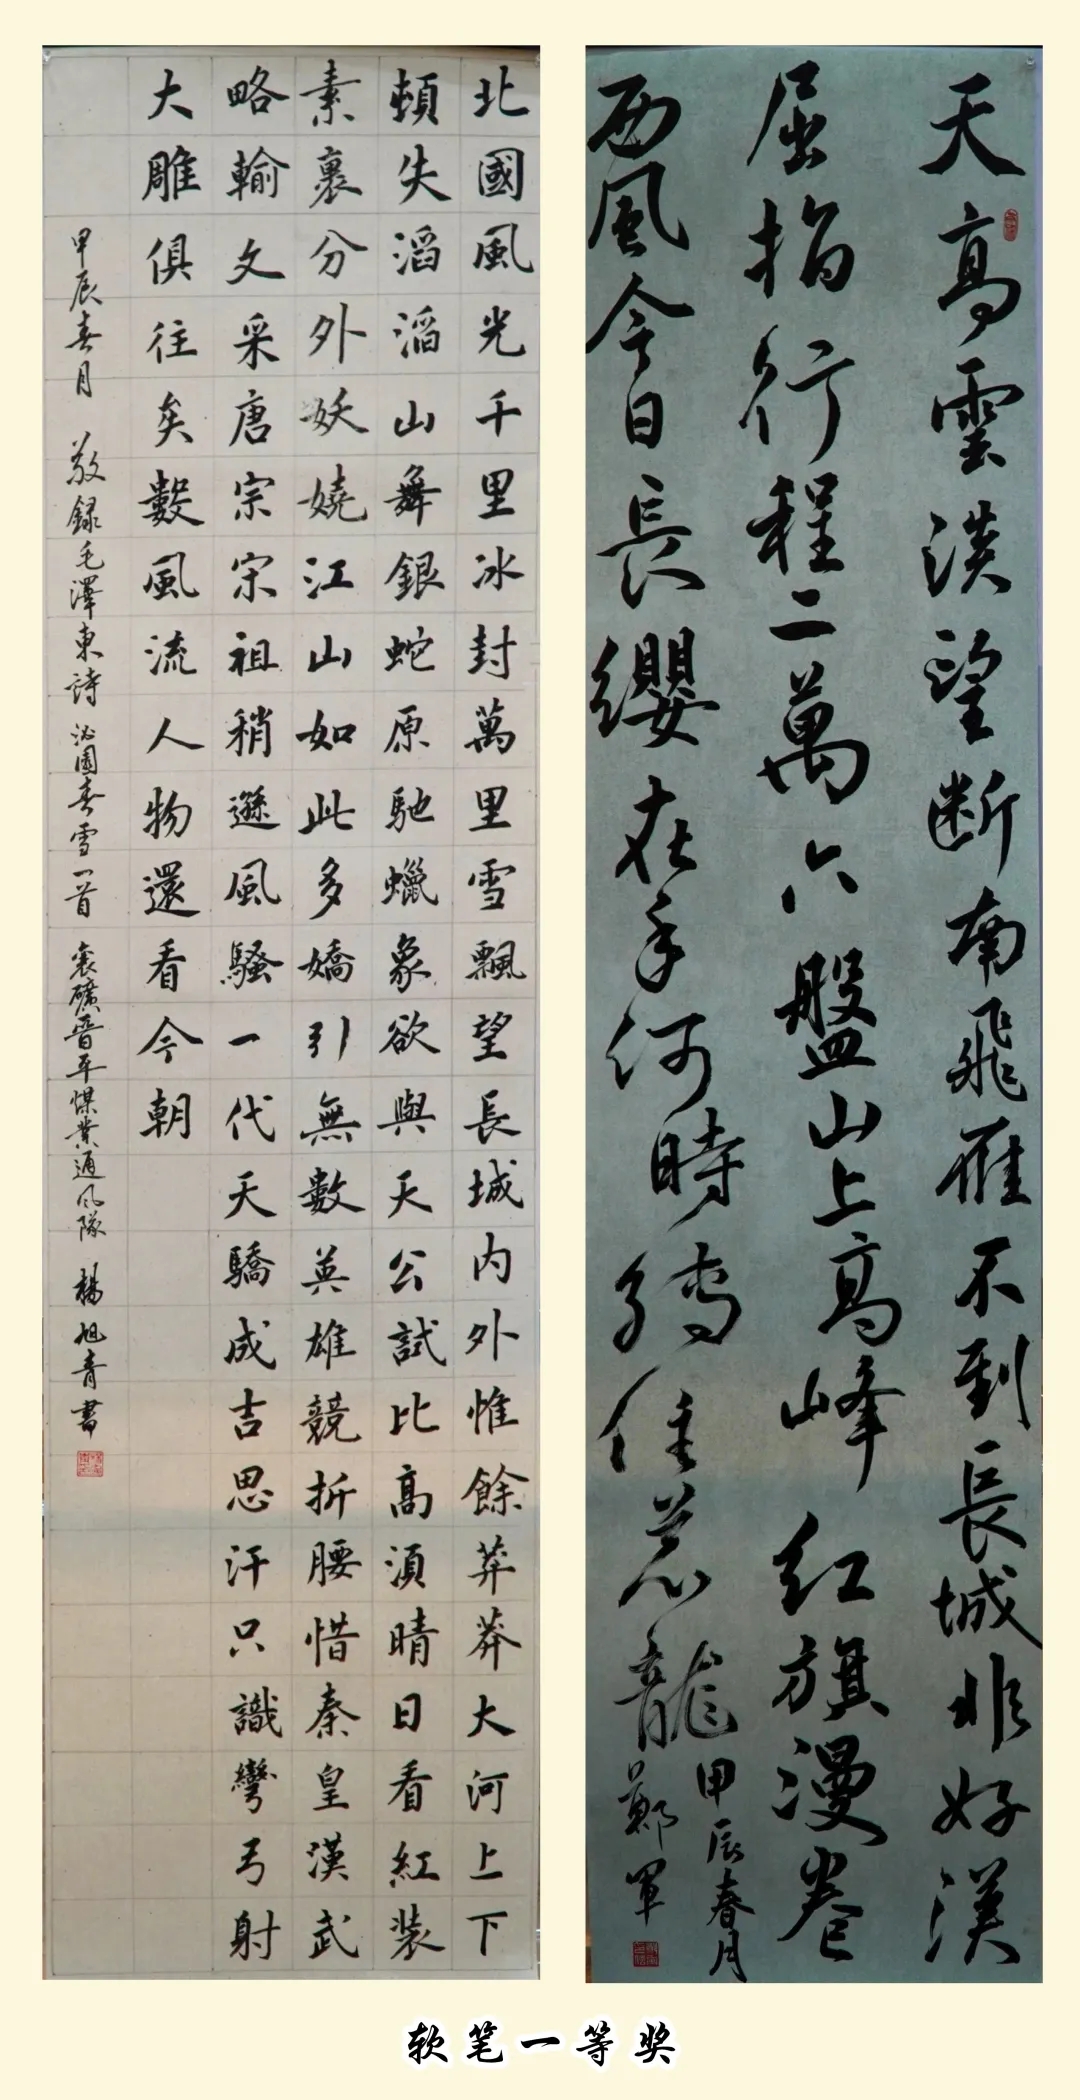 北國風光千里冰封萬里雪飄望長城内外惟餘莽莽大河上下
頓失滔滔山舞銀蛇原馳蠟象欲與天公試比高須晴日看紅装
素裹分外妖嬈江山如此多嬌引無數英雄競折腰惜秦皇漢武
略輸文采唐宗宋祖稍遜風騷一代天驕成吉思汗只識彎弓射
大雕俱往矣數風流人物還看今朝
甲辰春月 敬録毛澤東詩沁園春雪一首 襄礦晋平煤業通風隊 楊旭青書
天高雲淡望断南飛雁不到長城非好漢
屈指行程二萬六盤山上高峰紅旗漫卷
西風今日長纓在手何時縛住蒼龍
甲辰春月
鄭軍
软笔一等奖